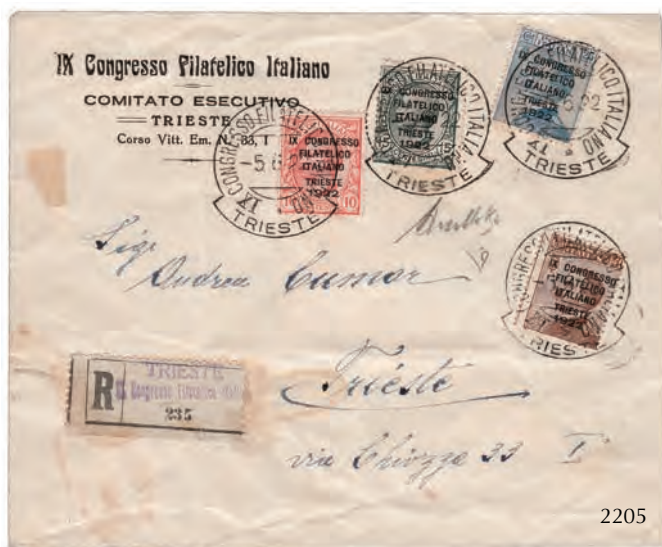 IX Congresso Filatelico Italiano
COMITATO ESECUTIVO
TRIESTE
Corso Vitt. Em. N. 33, I
IX CONGRESSO FILATELICO ITALIANO
-5.6.22
TRIESTE
IX CONGRESSO
FILATELICO
ITALIANO
TRIESTE
1922
10
CONGRESSO FILATELICO ITALIANO
TRIESTE
CONGRESSO
FILATELICO
ITALIANO
TRIESTE
1922
IX CONGRESSO FILATELICO ITALIANO
TRIESTE
IX CONGRESSO
FILATELICO
ITALIANO
TRIESTE
1922
IX CONGRESSO FILATELICO ITALIANO
TRIESTE
IX CONGRESSO
FILATELICO
ITALIANO
TRIESTE
1922
Sigr
Andrea Cumar
Trieste
via Chiozza 33 I
R
TRIESTE
IX. Congresso Filatelico Ital
235
2205